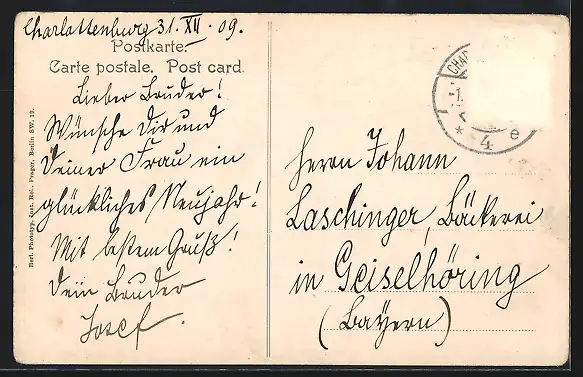 Charlottenburg 31. XII. 09.
Postkarte.
Carte postale. Post card.
Lieber Bruder!
Wünsche Dir und
Deiner Frau ein
glückliches Neujahr!
Mit bestem Gruß!
Dein Bruder
Josef.
Berl. Phototyp. Inst. Rob. Prager, Berlin SW. 19.
CHAR
-1.
* 4 e
Herrn Johann
Laschinger, Bäckerei
in Geiselhöring
(Bayern)